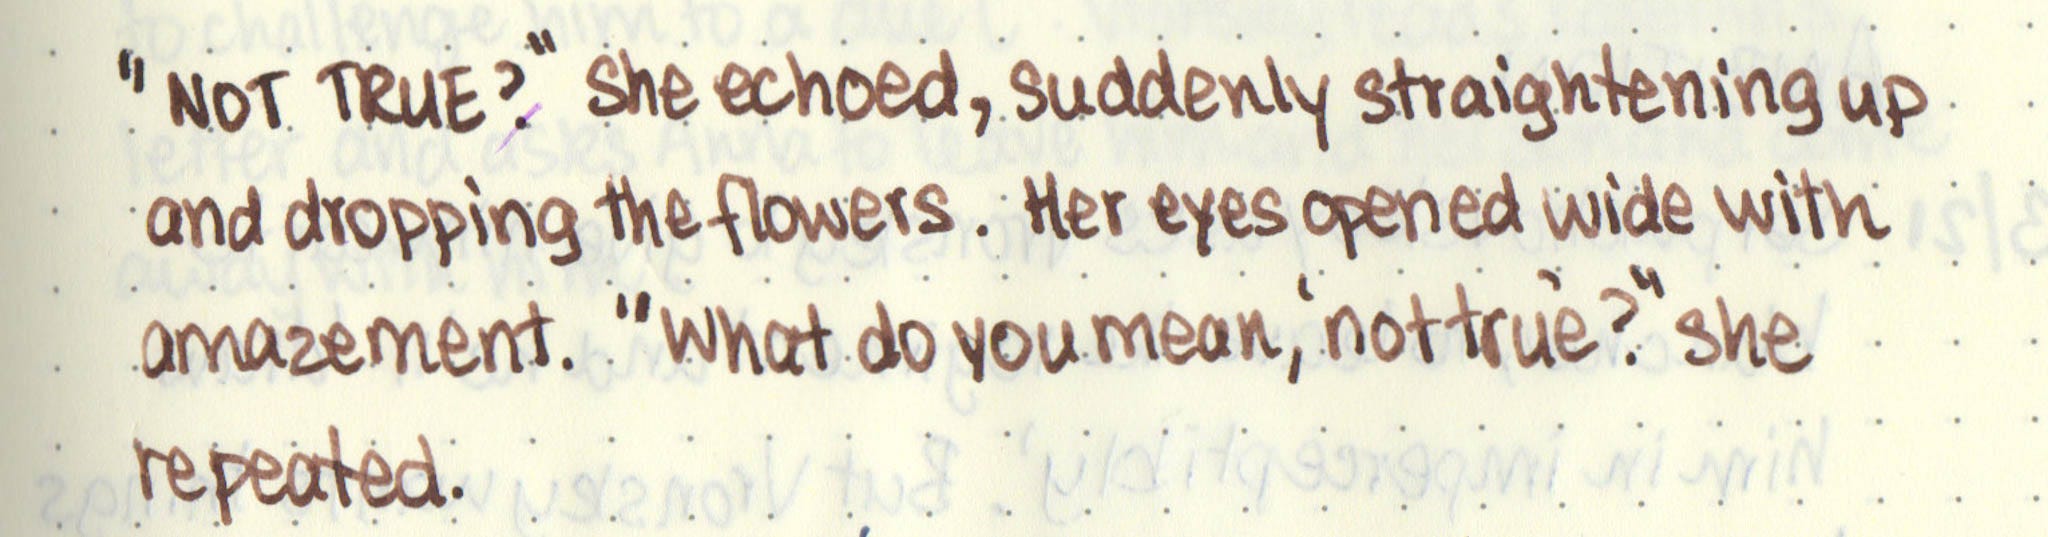 "NOT TRUE?" She echoed, suddenly straightening up
and dropping the flowers. Her eyes opened wide with
amazement. "What do you mean, 'not true'?" she
repeated.